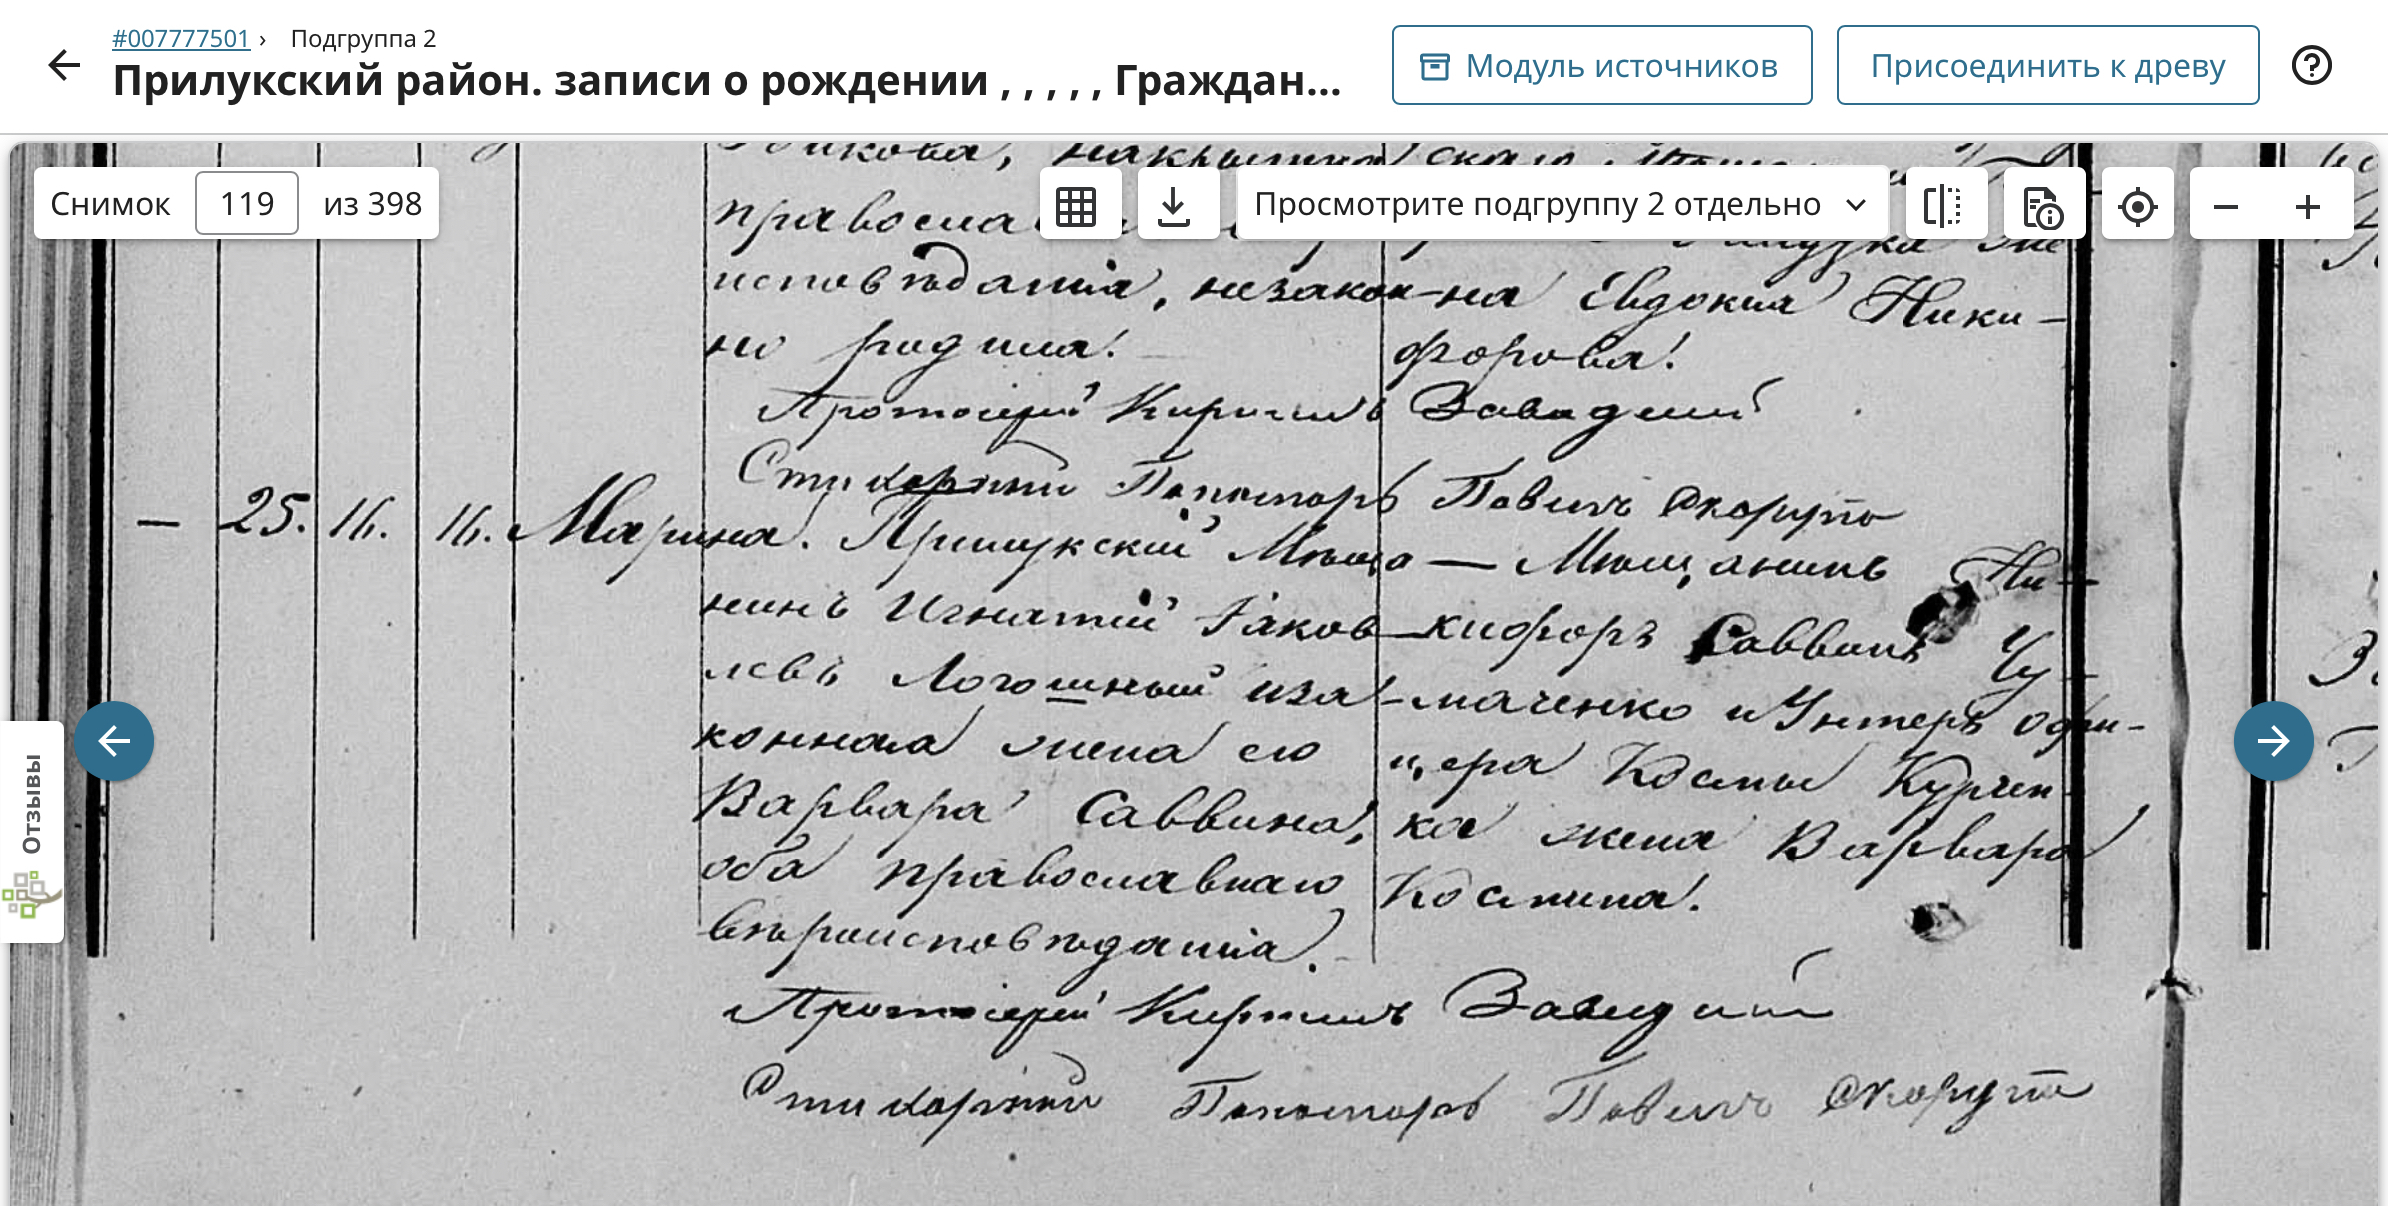 #007777501 › Подгруппа 2
Прилукский район. записи о рождении , , , , , Граждан...
Модуль источников
Присоединить к древу
Снимок 119 из 398
Просмотрите подгруппу 2 отдельно
Отзывы
исповѣданія, незакон-
но родила!
на Евдокия Ники-
форова!
Протоіерей Кириллъ Завадскій
Стихарный Пономарь Павелъ Скорупо
— 25. 16. 16. Марина.
Прилукскій Мѣща-
нинъ Игнатій Іаков-
левъ Логошный иза-
конная жена его
Варвара Саввина,
оба православнаго
вѣроисповѣданія.
Мѣщанинъ Ни-
кифоръ Саввинъ Чу-
маченко и Унтеръ офи-
цера Космы Курчен-
ка жена Варвара
Космина!
Протоіерей Кириллъ Завадскій
Стихарный Пономарь Павелъ Скорупо